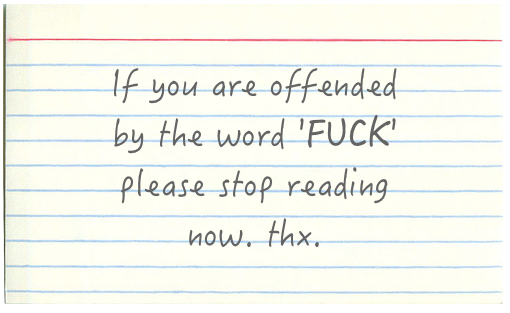 If you are offended
by the word 'FUCK'
please stop reading
now. thx.